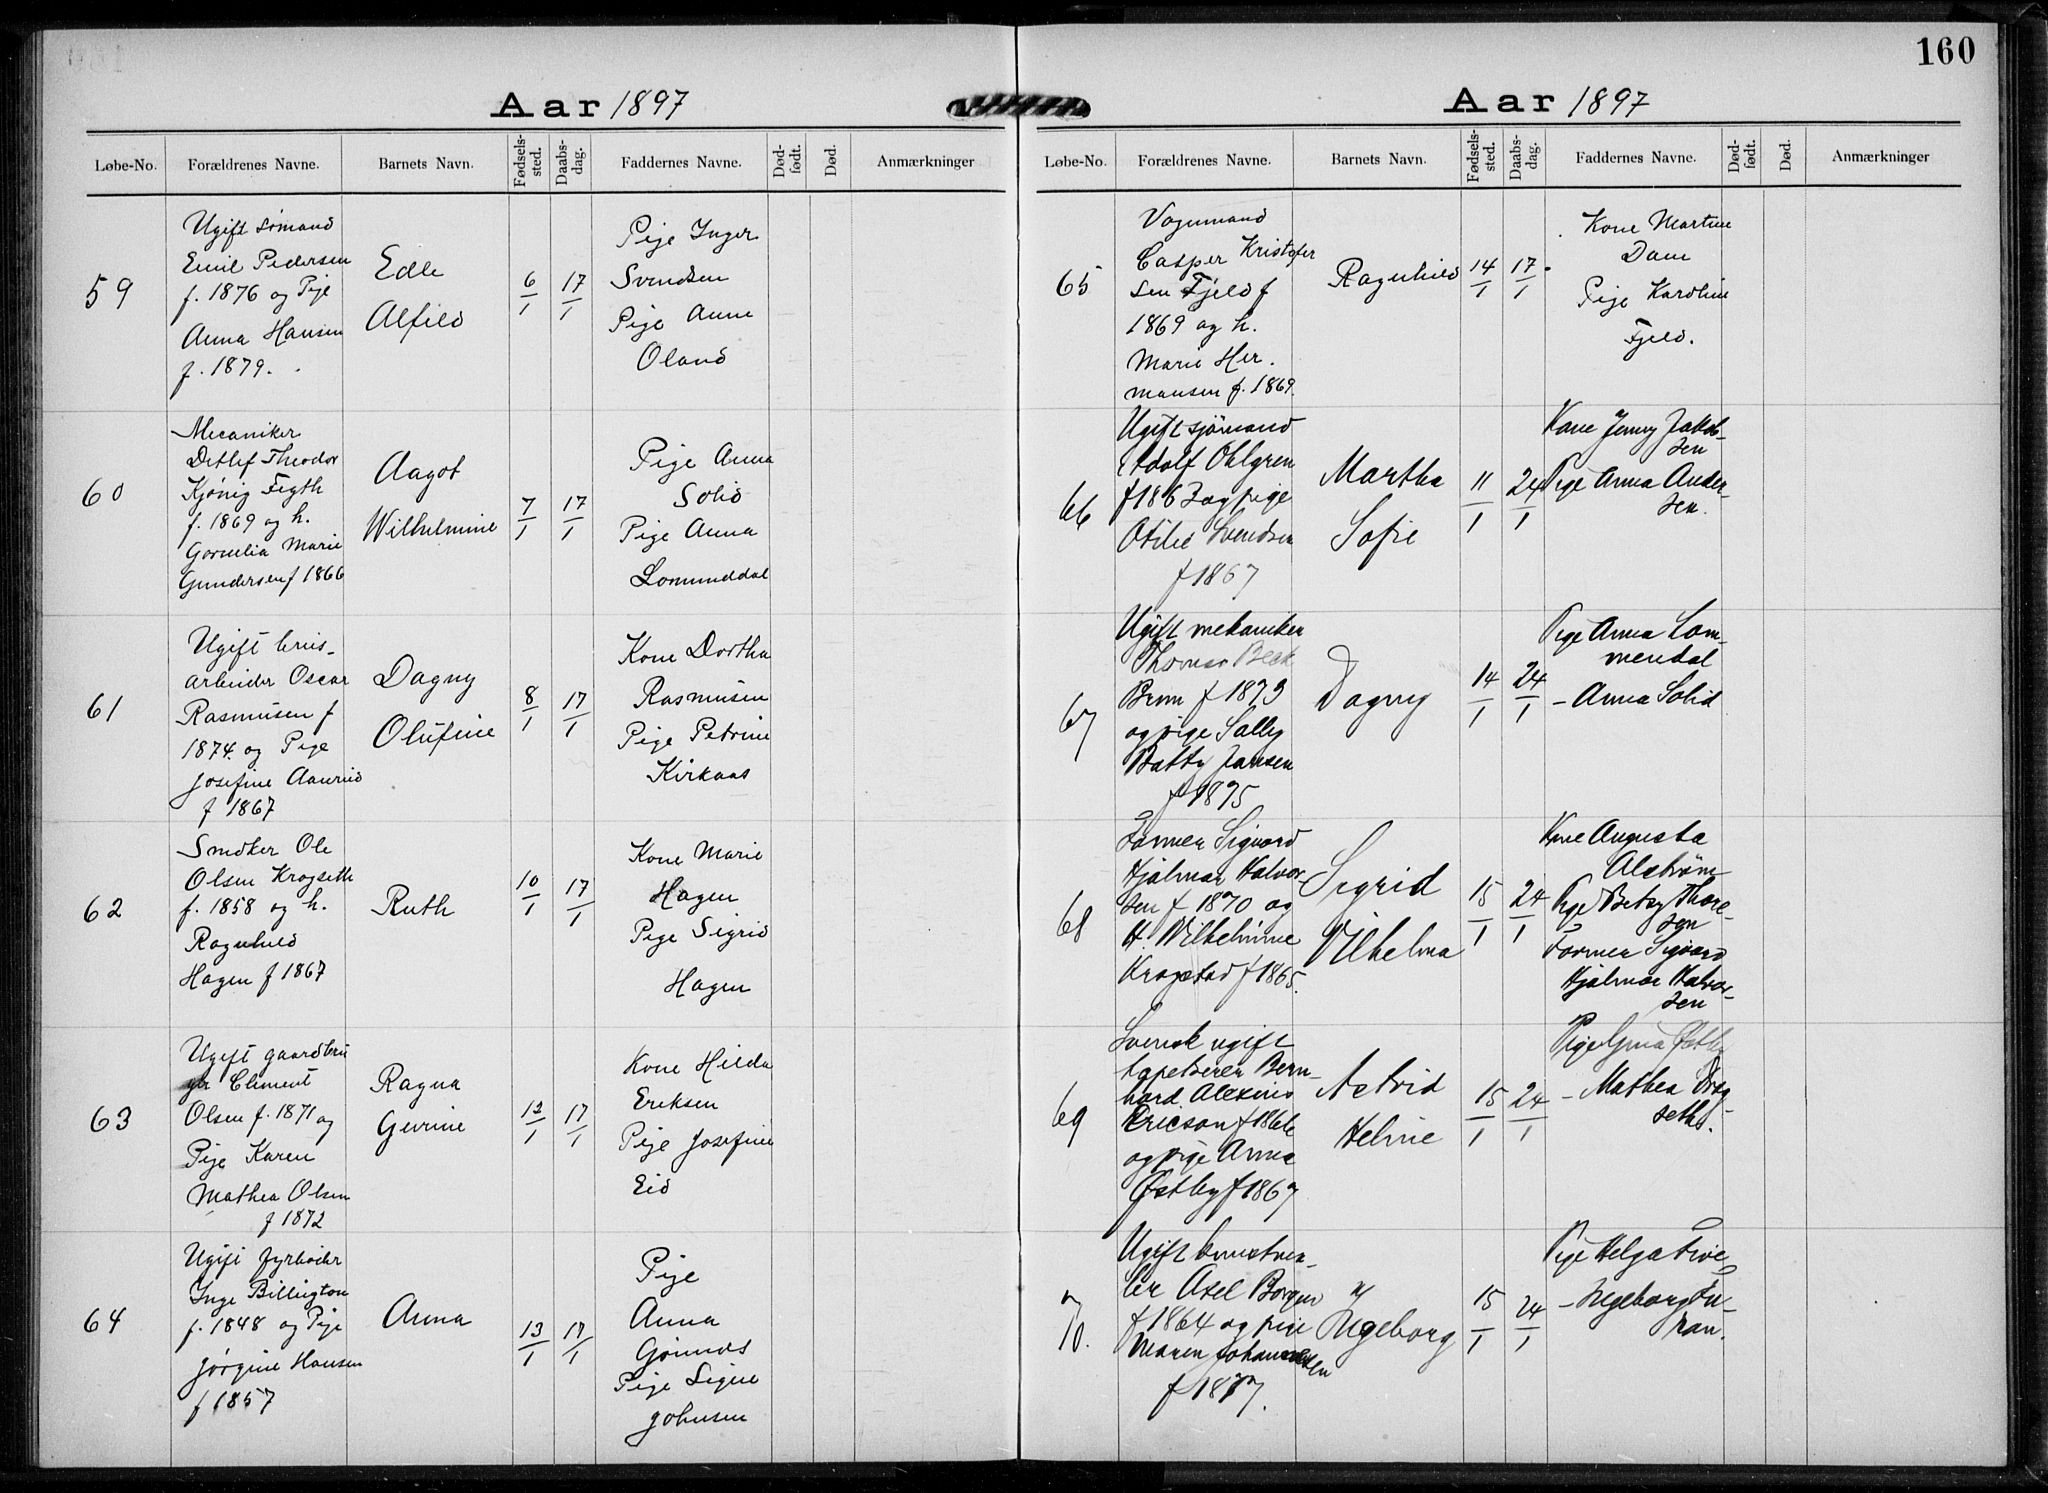 160
Aar 1897
Løbe-No. Forældrenes Navne. Barnets Navn. Fødsels-sted. Daabs-dag. Faddernes Navne. Død-født. Død. Anmærkninger
59
Ugift sømand
Emil Pedersen
f. 1876 og Pige
Anna Hansen
f. 1879.
Edle
Alfild
6/1
17/1
Pige Inger
Svendsen
Pige Anne
Oland
60
Mecaniker
Detlef Theodor
Kjønig Fegth
f. 1869 og h.
Gornelia Marie
Gundersen f 1866
Aagot
Wilhelmine
7/1
17/1
Pige Anna
Solid
Pige Anna
Lomunddal
61
Ugift brus-
arbeider Oscar
Rasmusen f
1874. og Pige
Josefine Aamrud
f 1867
Dagny
Olufine
8/1
17/1
Kone Dortha
Rasmusen
Pige Petrine
Kirkaas
62
Smøker Ole
Olsen Krogseth
f. 1858 og h.
Ragnhild
Hagen f 1867
Ruth
10/1
17/1
Kone Marie
Hagen
Pige Sigrid
Hagen
63
Ugift gaardbru
ger Clement
Olsen f. 1871 og
Pige Karen
Mathea Olsen
f 1872
Ragna
Gurine
12/1
17/1
Kone Hilda
Eriksen
Pige Josefine
Eid
64
Ugift fyrbøder
Inge Billington
f. 1848 og Pige
Jørgine Hansen
f 1857
Anna
13/1
17/1
Pige
Anna
Pige Signe
Johnsen
Aar 1897
Løbe-No. Forældrenes Navne. Barnets Navn. Fødsels-sted. Daabs-dag. Faddernes Navne. Død-født. Død. Anmærkninger
65
Vognmand
Casper Kristofer
sen Fjeld f
1869 og h.
Marie Her.
mansen f. 1869.
Ragnhild
14/1
17/1
Kone Martine
Dam
Pige Karoline
Fjeld.
66
Ugift sjømand
Adolf Ohlgren
f 1863 og pige
Otilie Svendsen
f 1867
Martha
Sofie
11/1
24/1
Kone Jenny Jakob-
sen
Pige Anna Ander-
sen.
67
Ugift mekaniker
Thomas Beck
Brun f 1873
og pige Sally
Batty Jansen
f 1875
Dagny
14/1
24/1
Pige Anna Lom-
mendal
- Anna Solid
68
Former Sigvard
Hjalmar Halvor
sen f 1870 og
H. Wilhelmine
Kragstad f 1865.
Sigrid
Vilhelma
15/1
24/1
Kone Augusta
Alström
Pige Betzy Thore-
sen
Former Sigvard
Hjalmar Halvor-
sen
69
Svensk ugift
tapetserer Bern-
hard Alexius
Ericson f 1866
og pige Anna
Østby f 1867
Astrid
Helmie
15/1
24/1
Pige Gina Østby
- Mathea Krog-
seth.
70.
Ugift
ler Axel Borgen
f 1864 og pige
Maren Johannessen
f 1877.
Ingeborg
15/1
24/1
Pige Helga
- Ingeborg Fu-
ran.